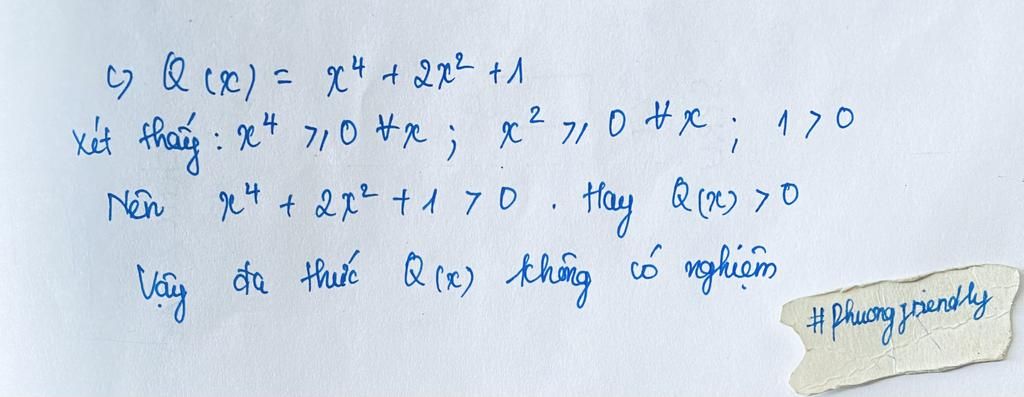 c) Q(x) = x⁴ + 2x² + 1
Xét thấy: x⁴ ⩾ 0 ∀x ; x² ⩾ 0 ∀x ; 1 > 0
Nên x⁴ + 2x² + 1 > 0 . Hay Q(x) > 0
Vậy đa thức Q(x) không có nghiệm
#Phuongfriendly